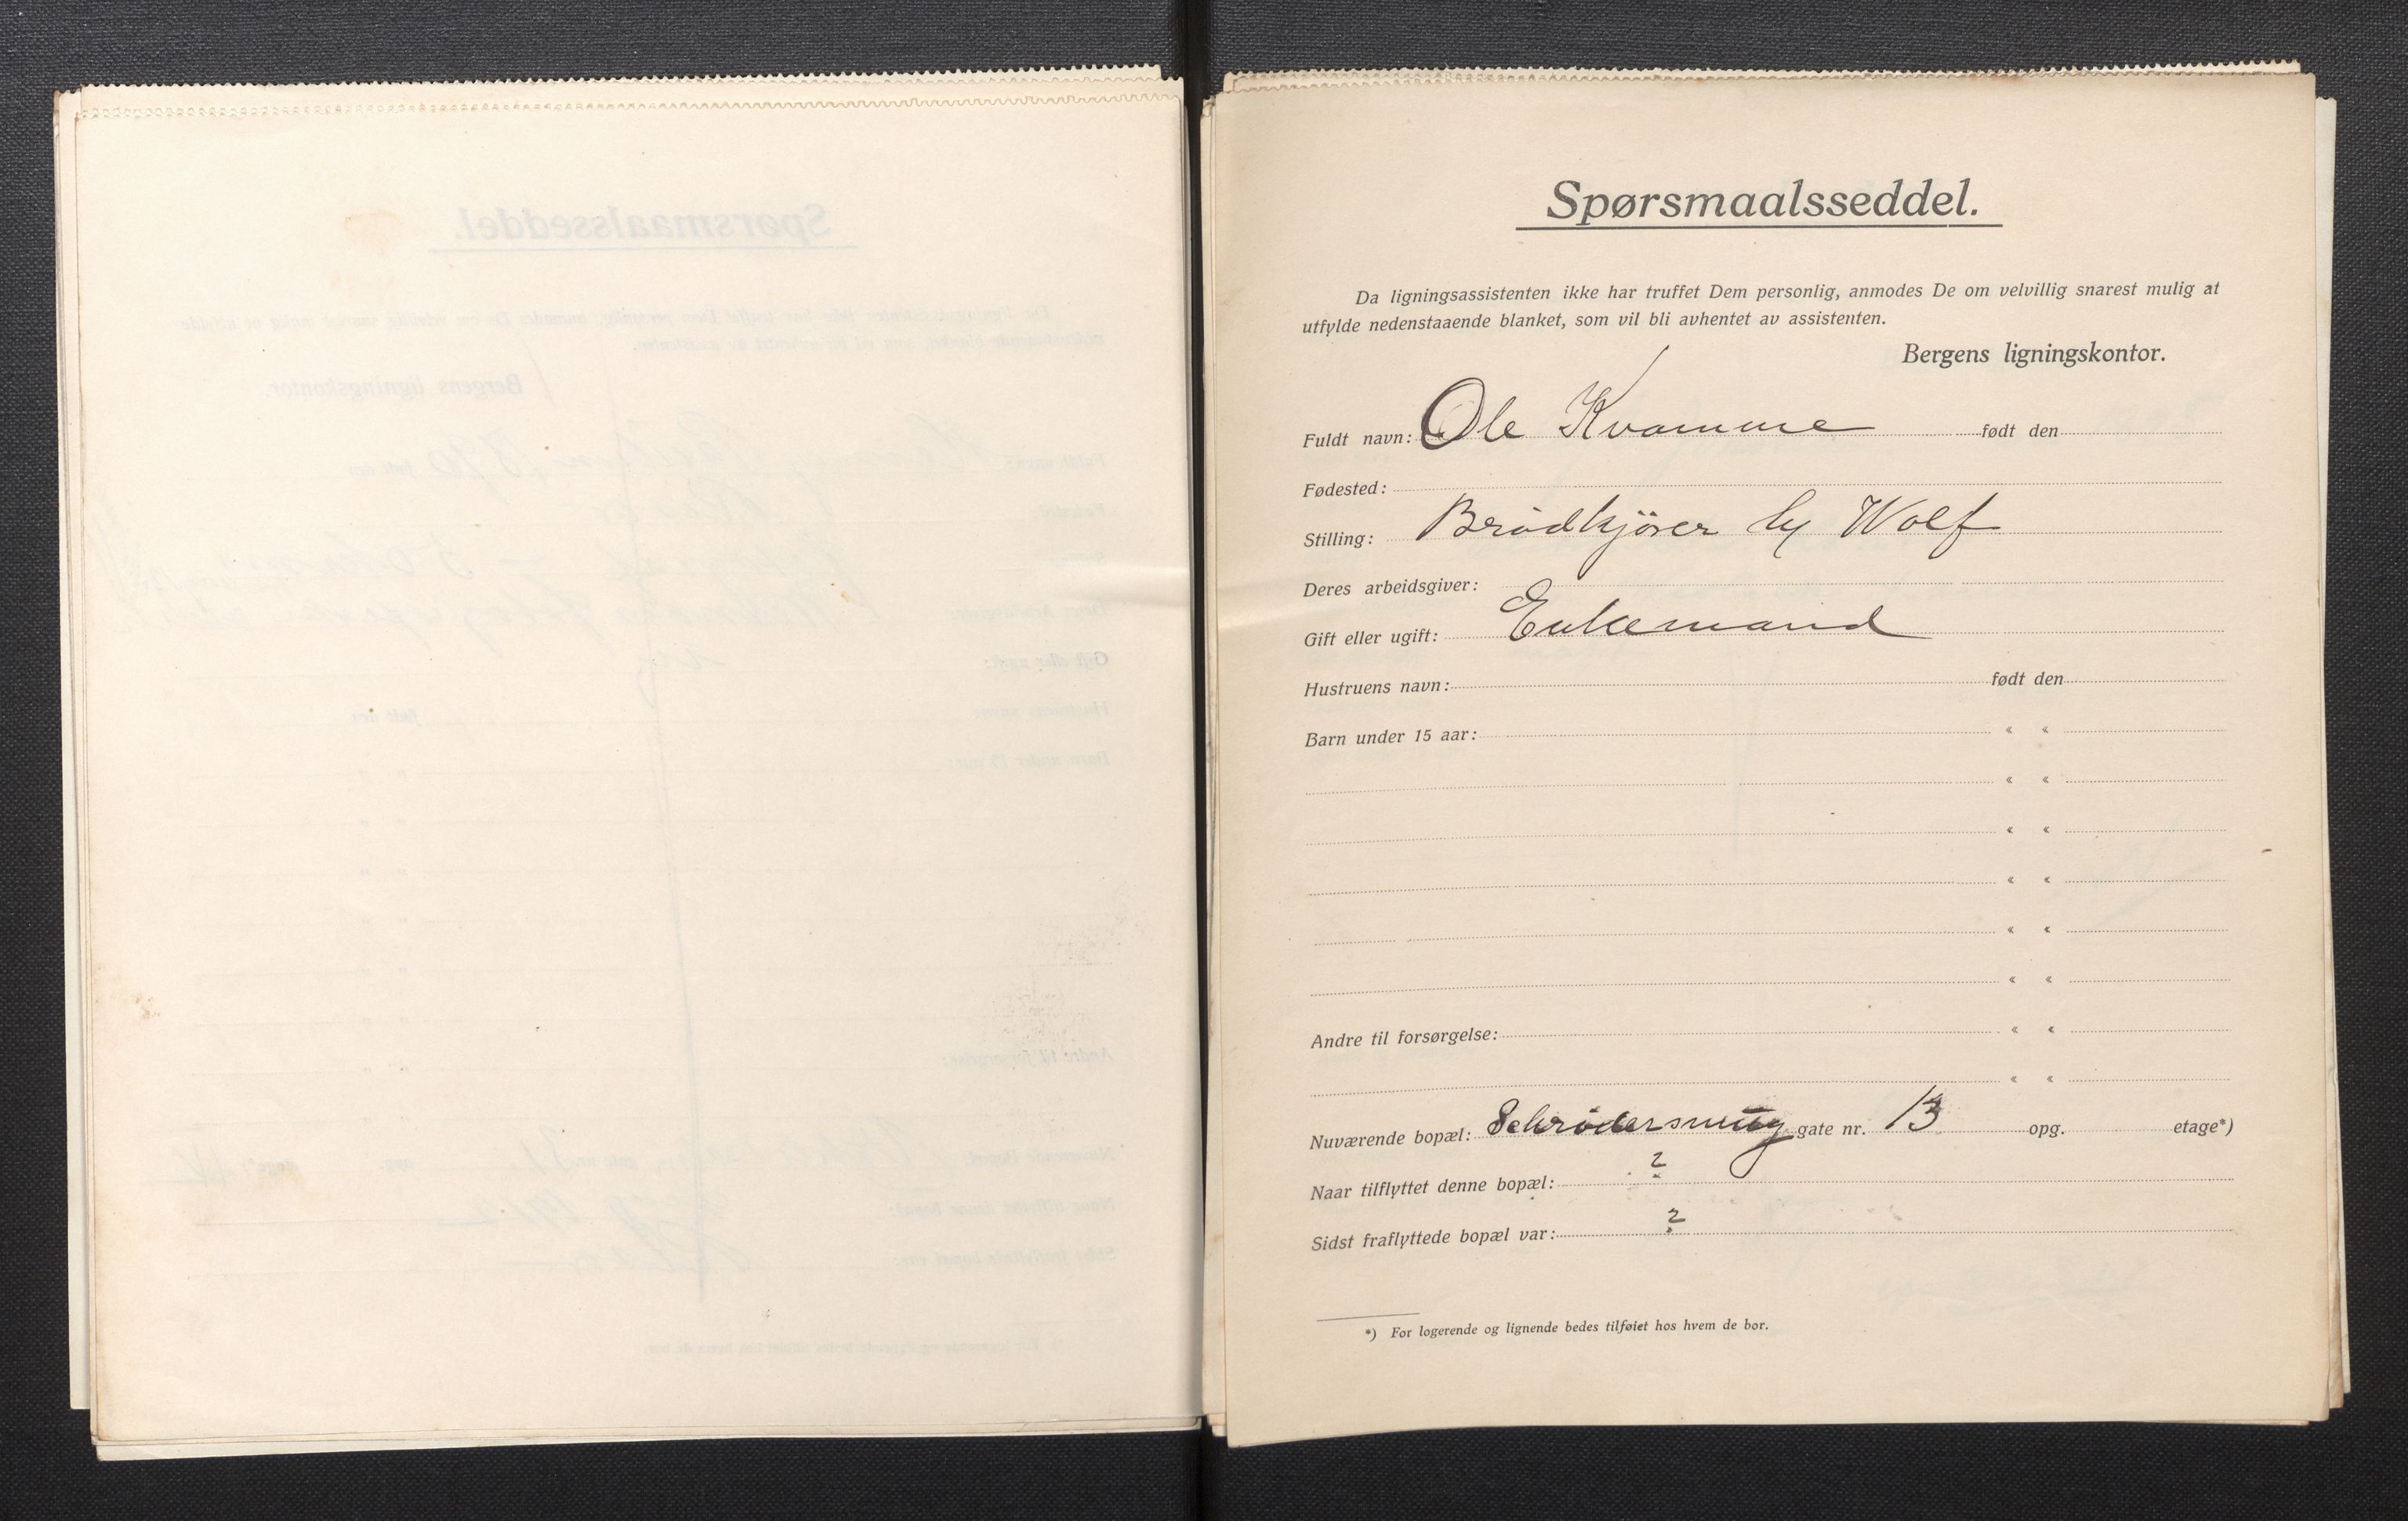 Spørsmaalsseddel.
Da ligningsassistenten ikke har truffet Dem personlig, anmodes De om velvillig snarest mulig at
utfylde nedenstaaende blanket, som vil bli avhentet av assistenten.
Bergens ligningskontor.
Fuldt navn: Ole Kvamme født den
Fødested:
Stilling: Brødkjører hy Wolf
Deres arbeidsgiver:
Gift eller ugift: Enkemand
Hustruens navn: født den
Barn under 15 aar: « «
« «
« «
« «
« «
« «
Andre til forsørgelse: « «
« «
Nuværende bopæl: Schrødersmug gate nr. 13 opg. etage*)
Naar tilflyttet denne bopæl: ?
Sidst fraflyttede bopæl var: ?
*) For logerende og lignende bedes tilføiet hos hvem de bor.